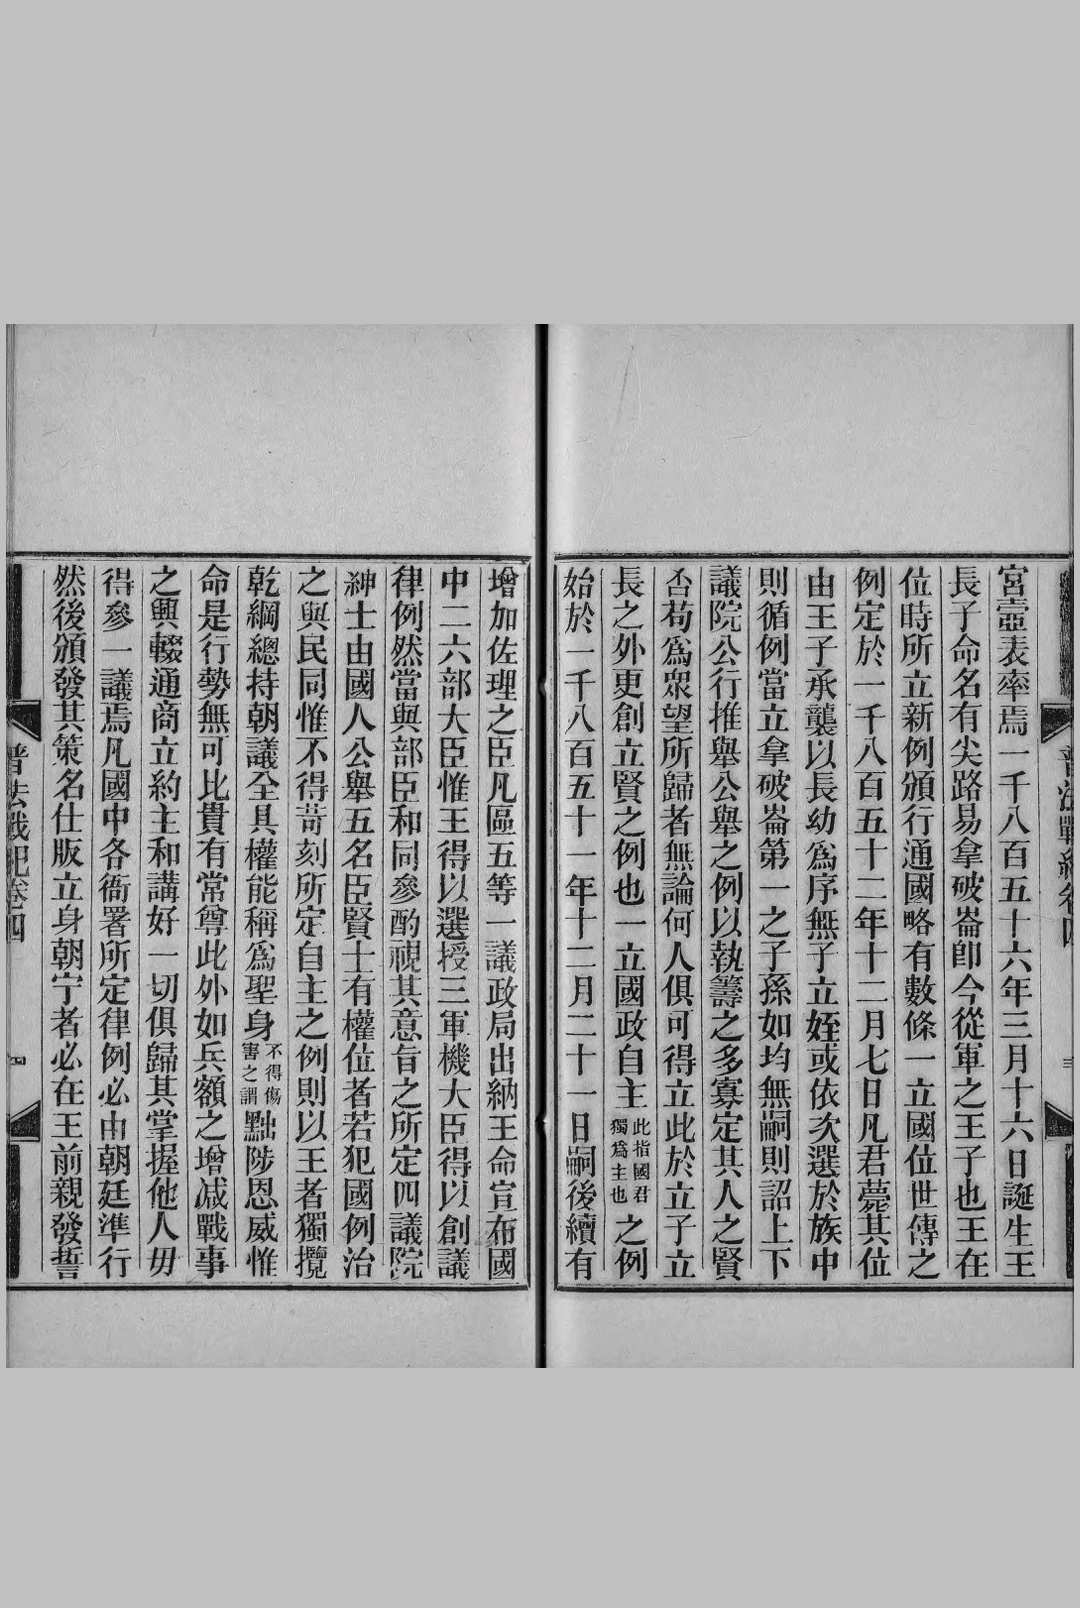 普法戰紀卷四
宮壼表率焉一千八百五十六年三月十六日誕生王
長子命名有尖路易拿破崙卽今從軍之王子也王在
位時所立新例頒行通國略有數條一立國位世傳之
例定於一千八百五十二年十二月七日凡君薨其位
由王子承襲以長幼爲序無子立姪或依次選於族中
則循例當立拿破崙第一之子孫如均無嗣則詔上下
議院公行推舉公舉之例以執籌之多寡定其人之賢
否苟爲衆望所歸者無論何人俱可得立此於立子立
長之外更創立賢之例也一立國政自主此指國君獨爲主也之例
始於一千八百五十一年十二月二十一日嗣後續有
增加佐理之臣凡區五等一議政局出納王命宣布國
中二六部大臣惟王得以選授三軍機大臣得以創議
律例然當與部臣和同參酌視其意旨之所定四議院
紳士由國人公舉五名臣賢士有權位者若犯國例治
之與民同惟不得苛刻所定自主之例則以王者獨攬
乾綱總持朝議全具權能稱爲聖身不得傷害之謂黜陟恩威惟
命是行勢無可比貴有常尊此外如兵額之增减戰事
之興輟通商立約主和講好一切俱歸其掌握他人毋
得參一議焉凡國中各衙署所定律例必由朝廷準行
然後頒發其策名仕版立身朝宁者必在王前親發誓
普法戰紀卷四
四